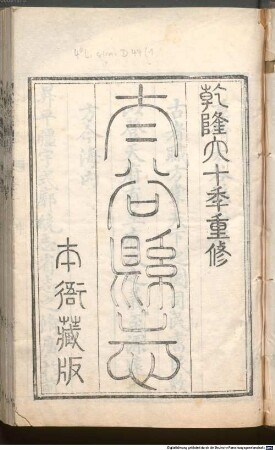 乾隆六十年重修
太谷縣志
本衙藏版
Digitalisierung gefördert durch die Deutsche Forschungsgemeinschaft